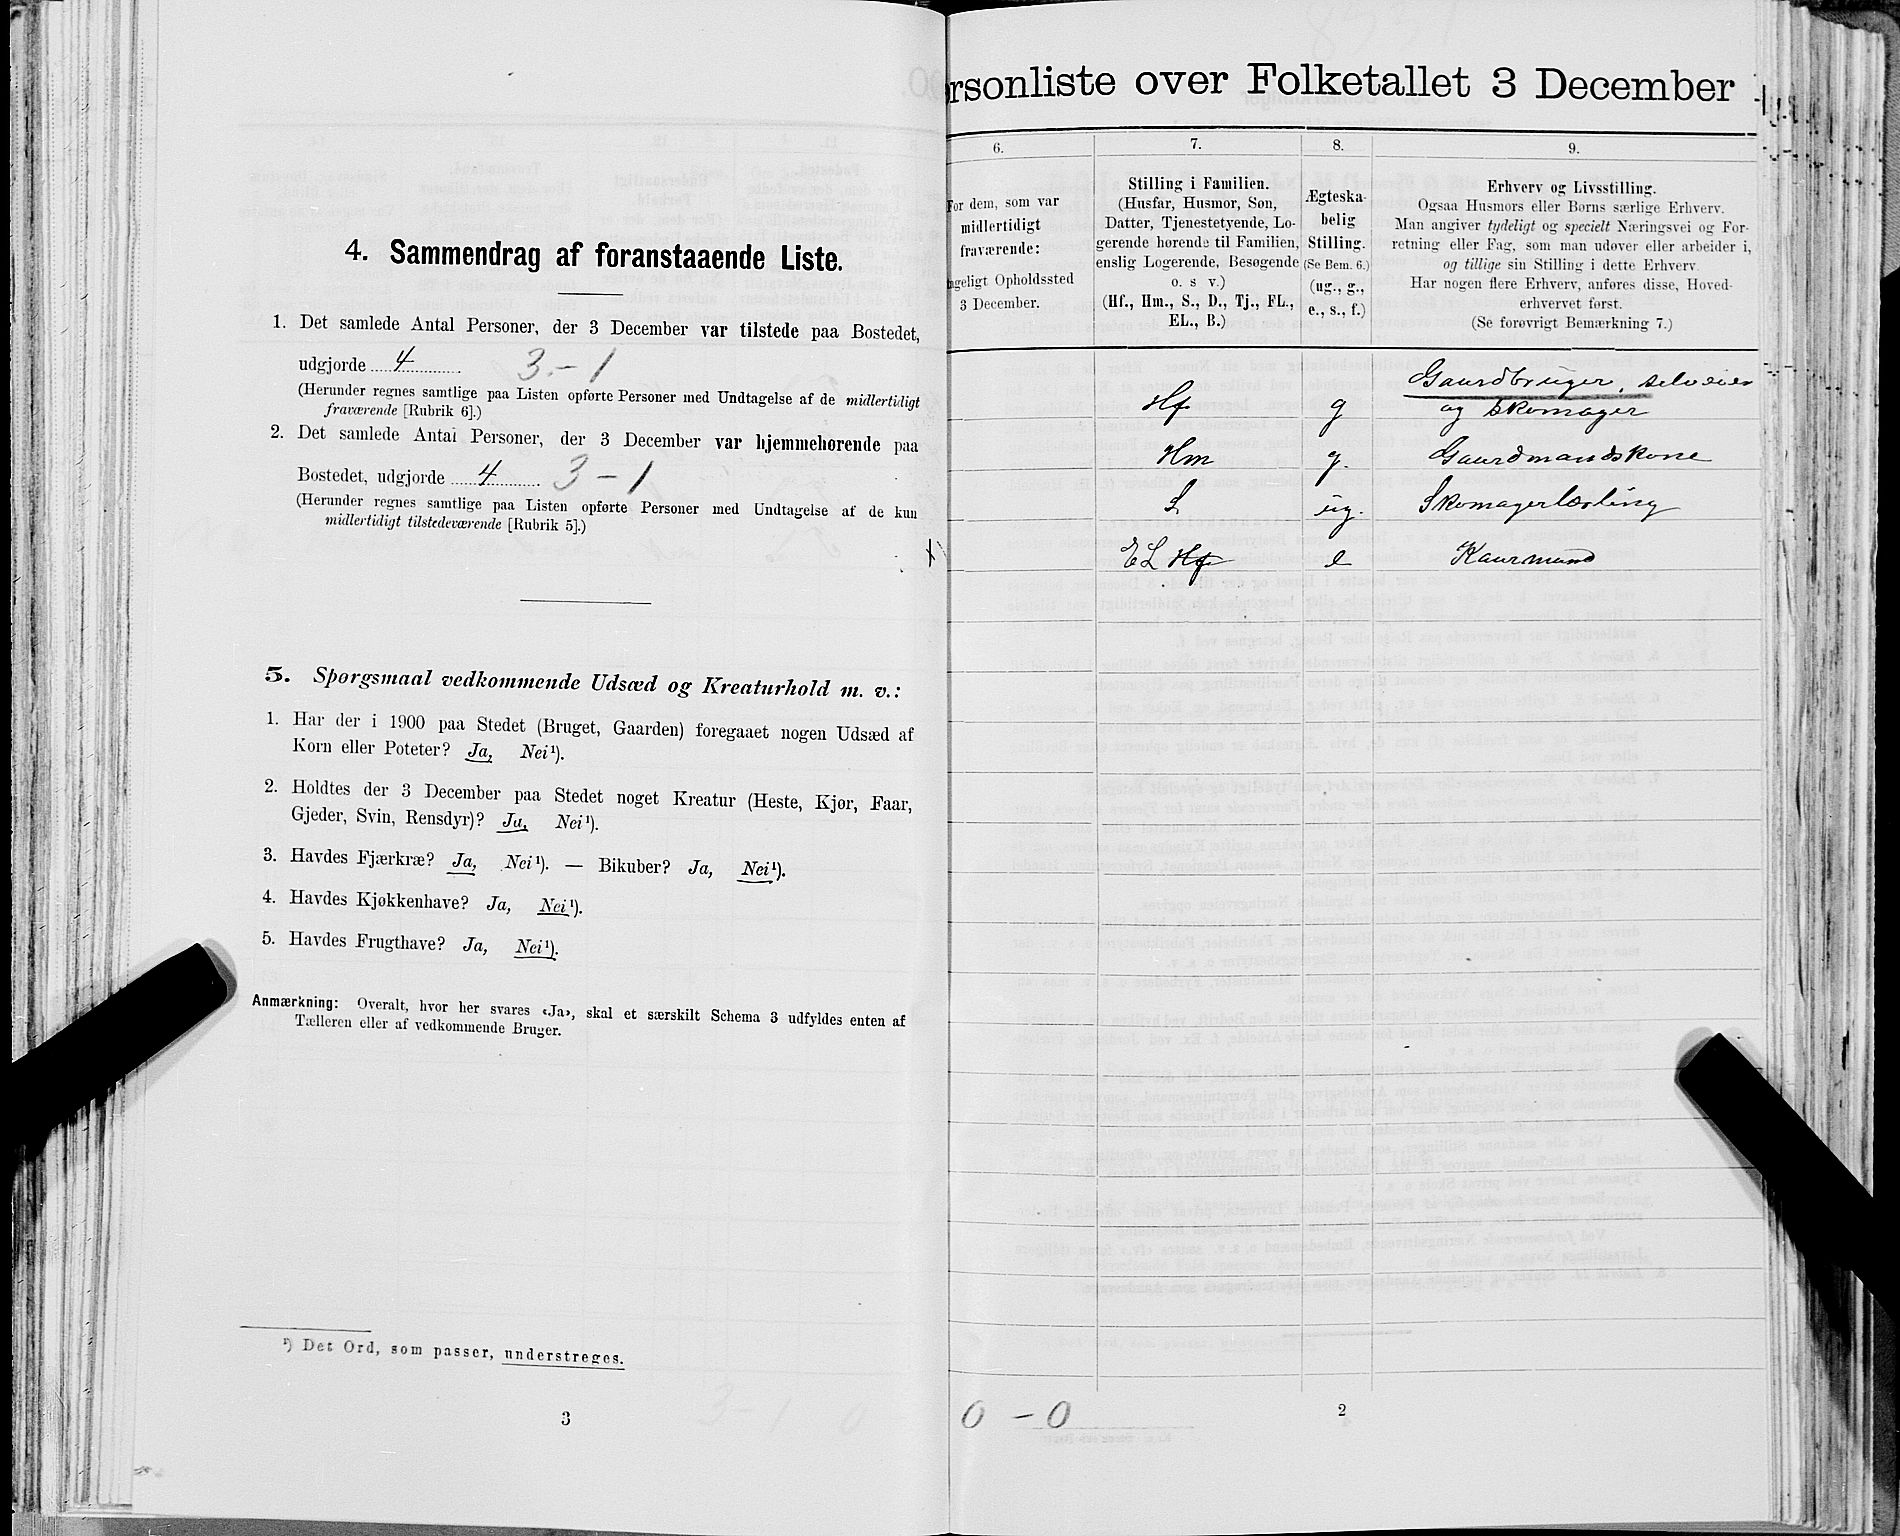 4. Sammendrag af foranstaaende Liste.
1. Det samlede Antal Personer, der 3 December var tilstede paa Bostedet,
udgjorde 4 3 - 1
(Herunder regnes samtlige paa Listen opførte Personer med Undtagelse af de midlertidigt
fraværende [Rubrik 6].)
2. Det samlede Antal Personer, der 3 December var hjemmehørende paa
Bostedet, udgjorde 4 3 - 1
(Herunder regnes samtlige paa Listen opførte Personer med Undtagelse af de kun
midlertidigt tilstedeværende [Rubrik 5].)
5. Spørgsmaal vedkommende Udsæd og Kreaturhold m. v.:
1. Har der i 1900 paa Stedet (Bruget, Gaarden) foregaaet nogen Udsæd af
Korn eller Poteter? Ja, Nei¹).
2. Holdtes der 3 December paa Stedet noget Kreatur (Heste, Kjør, Faar,
Gjeder, Svin, Rensdyr)? Ja, Nei¹).
3. Havdes Fjærkræ? Ja, Nei¹). — Bikuber? Ja, Nei¹).
4. Havdes Kjøkkenhave? Ja, Nei¹).
5. Havdes Frugthave? Ja, Nei¹).
Anmærkning: Overalt, hvor her svares «Ja», skal et særskilt Schema 3 udfyldes enten af
Tælleren eller af vedkommende Bruger.
¹) Det Ord, som passer, understreges.
3
rsonliste over Folketallet 3 December
6.
For dem, som var
midlertidigt
fraværende:
geligt Opholdssted
3 December.
7.
Stilling i Familien.
(Husfar, Husmor, Søn,
Datter, Tjenestetyende, Lo-
gerende hørende til Familien,
enslig Logerende, Besøgende
o. s v.)
(Hf., Hm., S., D., Tj., FL.,
EL., B.)
8.
Ægteska-
belig
Stilling.
(Se Bem. 6.)
(ug., g.,
e., s., f.)
9.
Erhverv og Livsstilling.
Ogsaa Husmors eller Børns særlige Erhverv.
Man angiver tydeligt og specielt Næringsvei og For-
retning eller Fag, som man udøver eller arbeider i,
og tillige sin Stilling i dette Erhverv.
Har nogen flere Erhverv, anføres disse, Hoved-
erhvervet først.
(Se forøvrigt Bemærkning 7.)
Gaardbruger, selveier
Hf g og Skomager
Hm g. Gaardmandskone
S ug. Skomagerlærling
EL Hf e Kaarmand
0 - 0
2